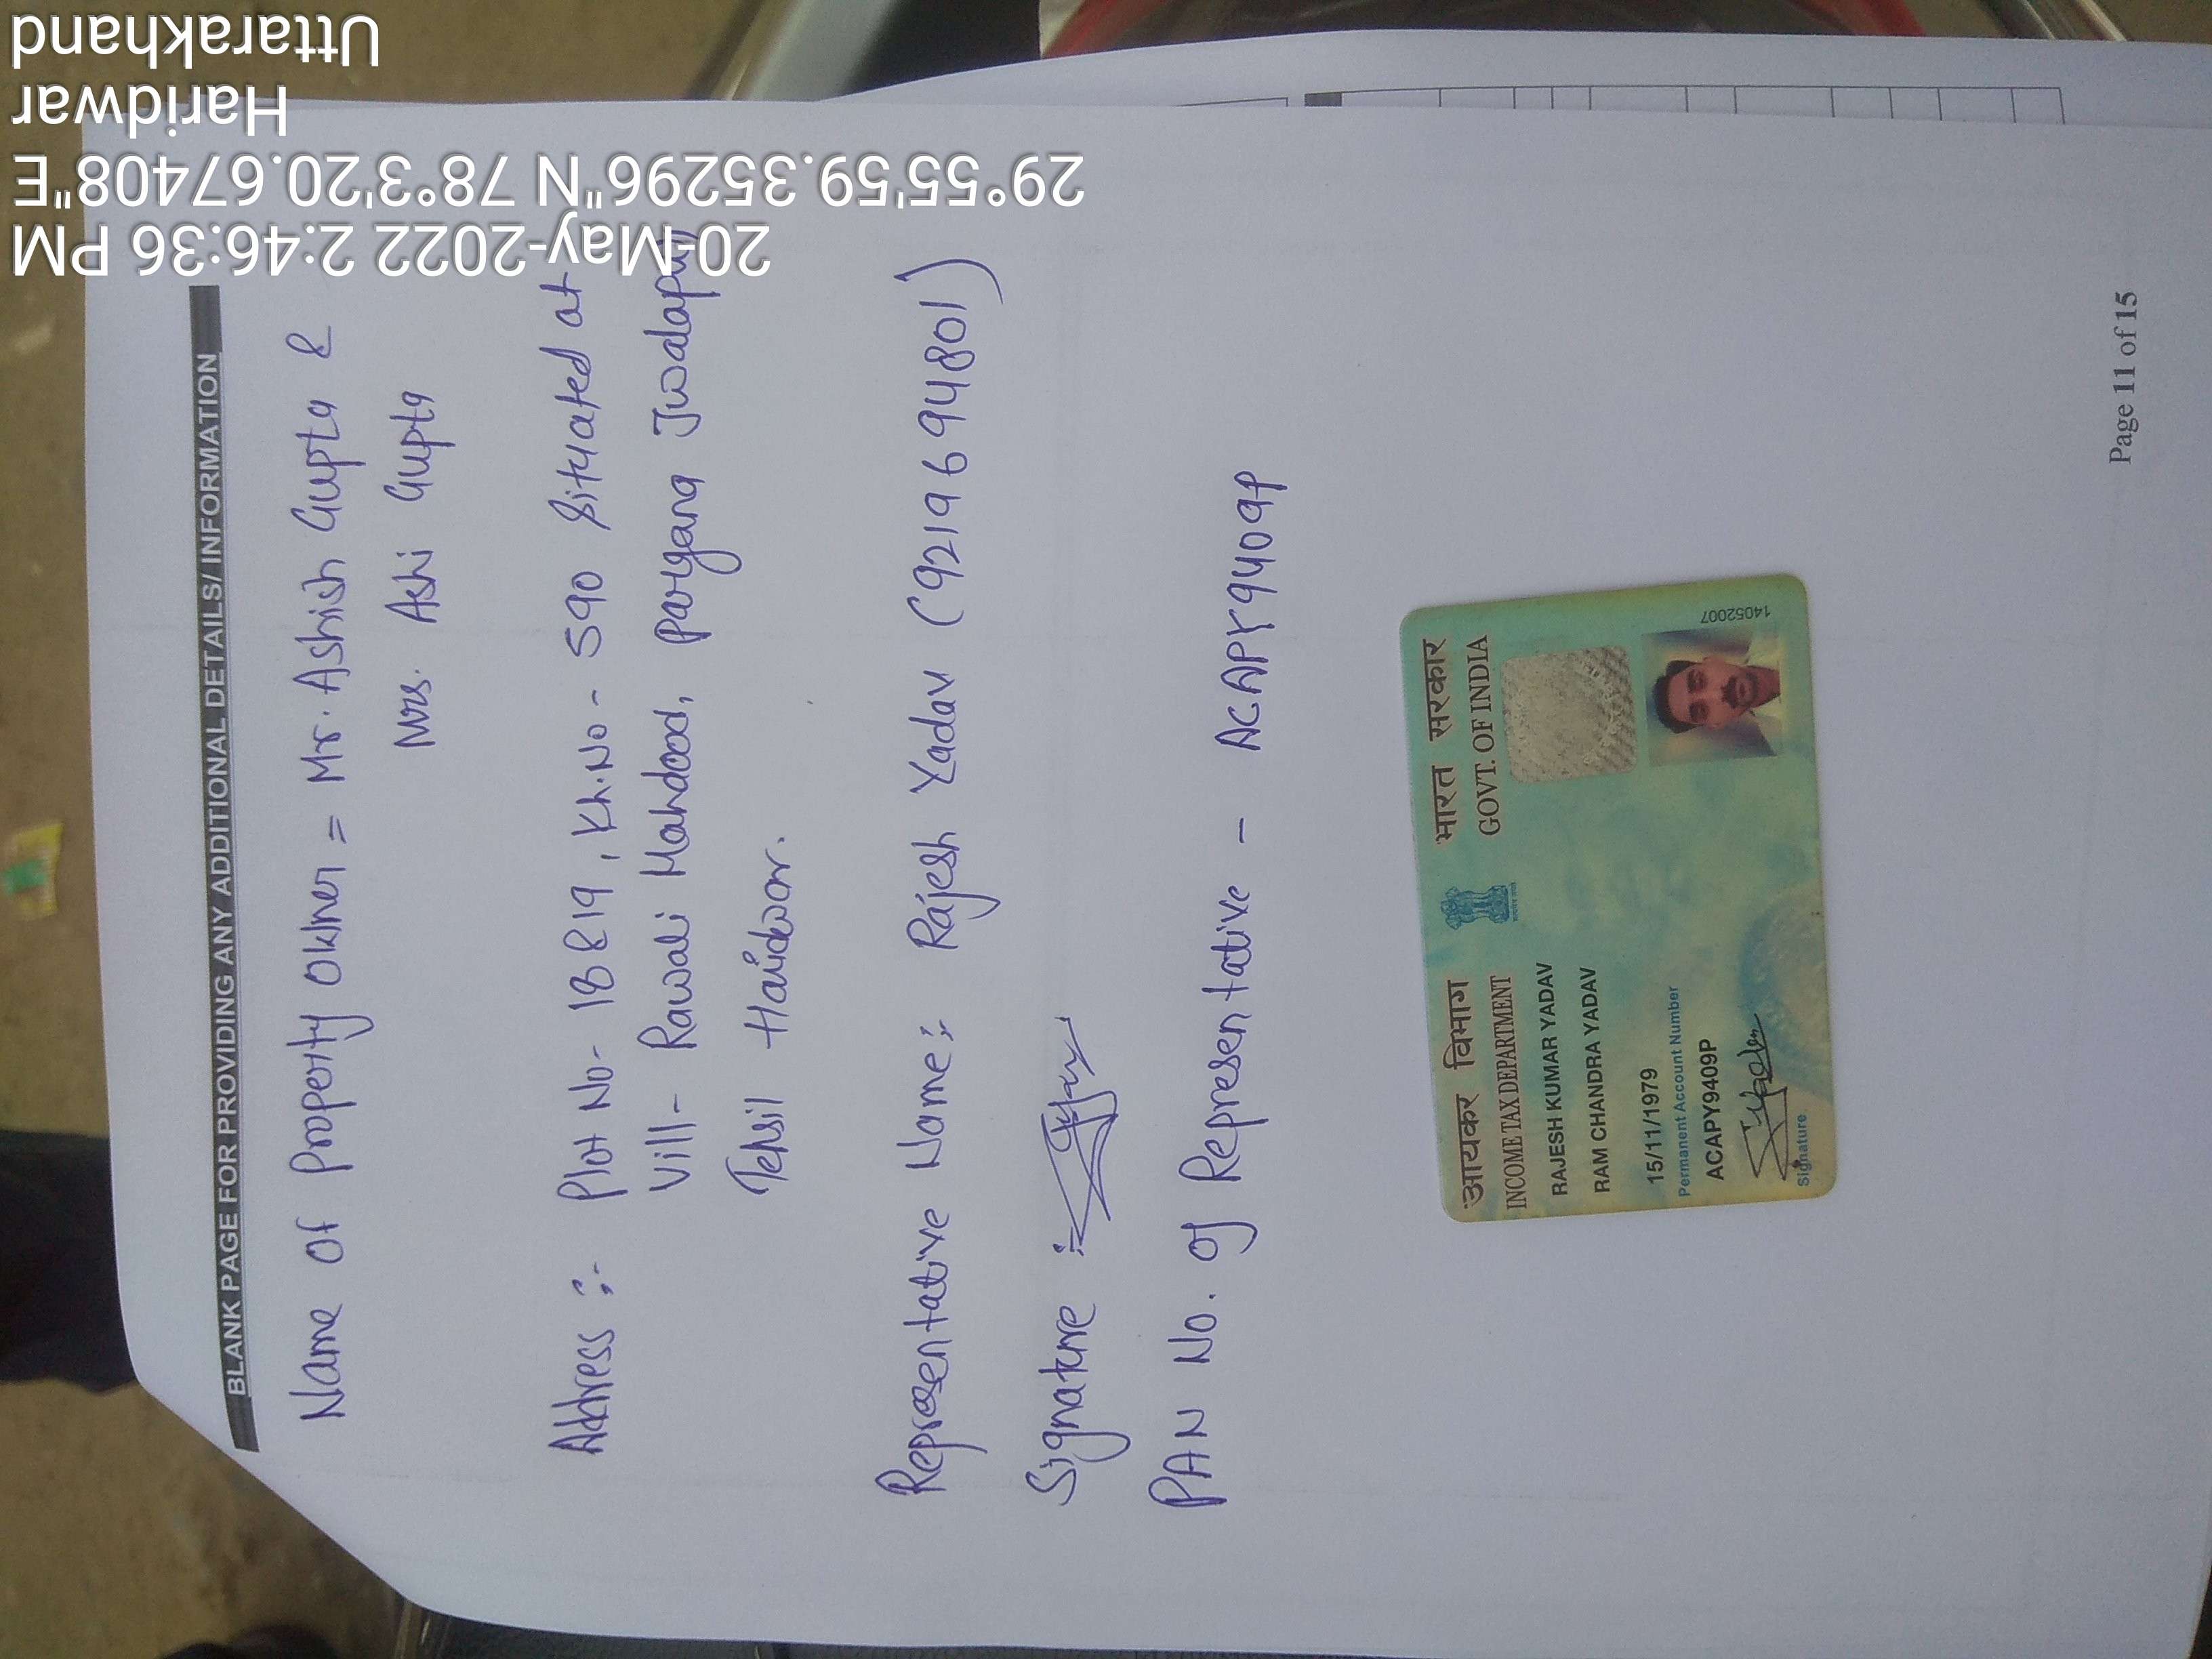 BLANK PAGE FOR PROVIDING ANY ADDITIONAL DETAILS/ INFORMATION
Name of Property Owner = Mr. Ashish Gupta &
Mrs. Ashi Gupta
Address :- Plot No- 18 & 19, Kh.No- 590 Situated at
Vill- Rawali Mahdood, pargana Jwalapur
Tehsil Haridwar.
Representative Name:- Rajesh Yadav (9219694801)
Signature :-
PAN No. of Representative - ACAPY9409P
आयकर विभाग
INCOME TAX DEPARTMENT
भारत सरकार
GOVT. OF INDIA
RAJESH KUMAR YADAV
RAM CHANDRA YADAV
15/11/1979
Permanent Account Number
ACAPY9409P
Signature
14052007
Page 11 of 15
20-May-2022 2:46:36 PM
29°55'59.35296"N 78°3'20.67408"E
Haridwar
Uttarakhand